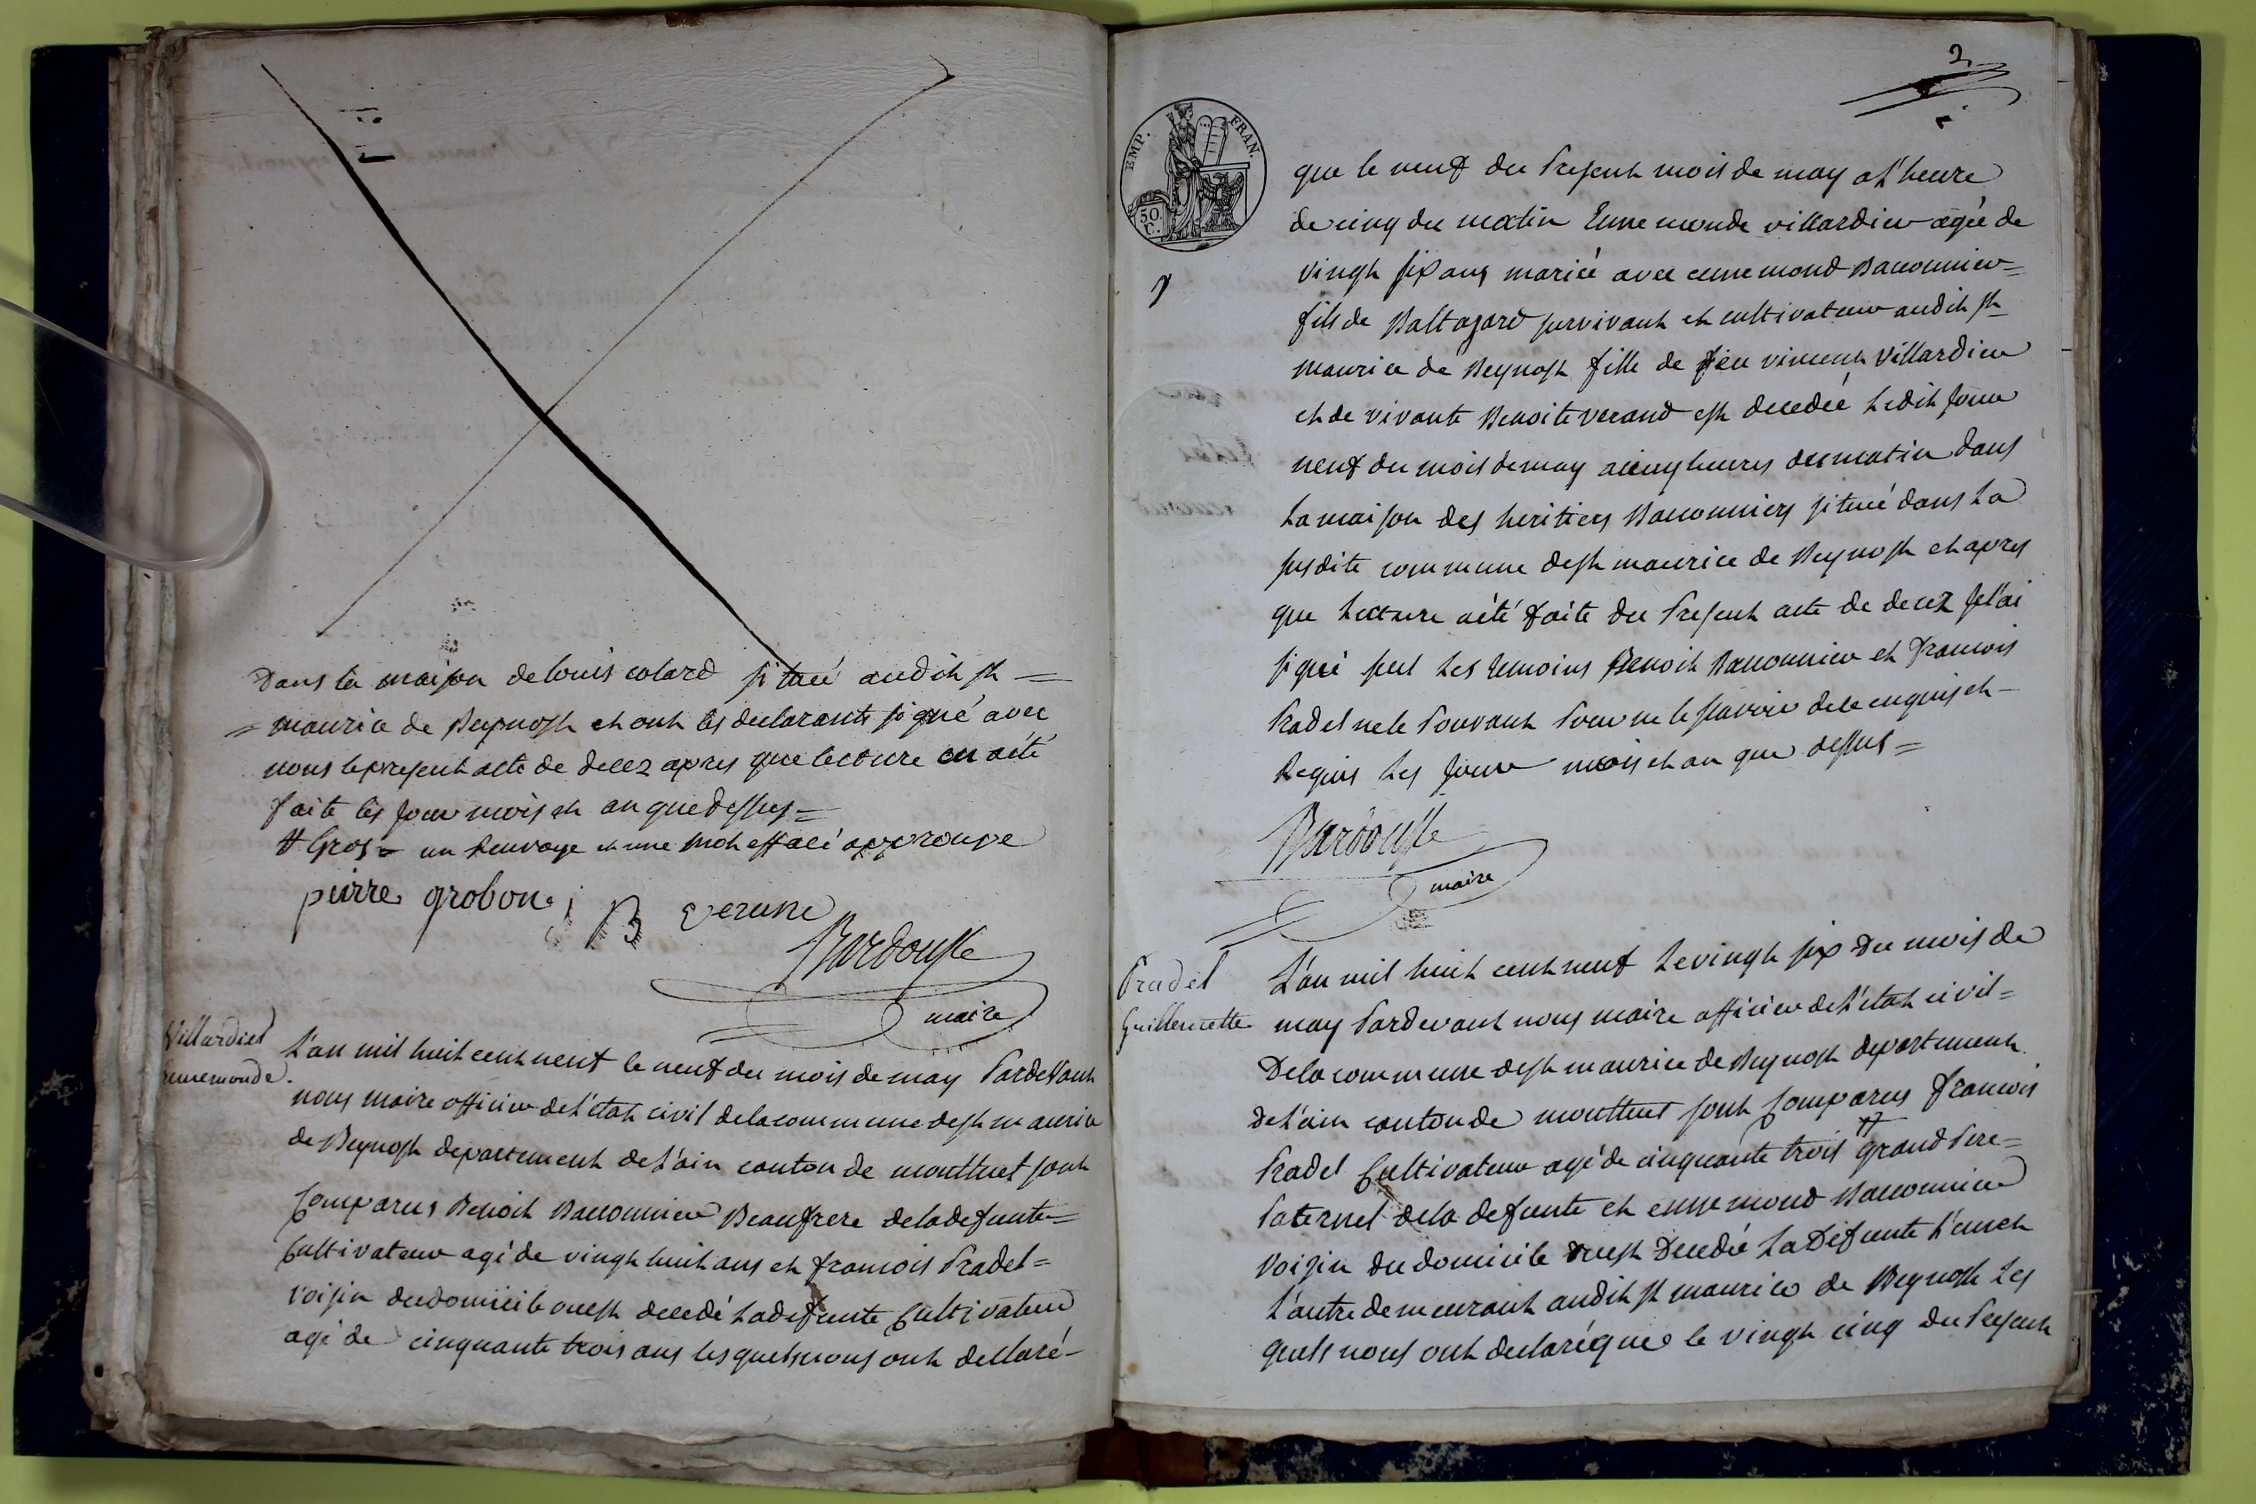 Dans la maison de louis colard situé audit st =
= maurice de Beynost et ont les declarants signé avec
nous le present acte de decez apres que lecture en a été
faite les jour mois et an que dessus =
# Gros = un renvoye et une mot effacé approuve
pierre grobon
B verune
Bardousse
maire
Villardiet
ennemonde.
L'an mil huit cent neuf le neuf du mois de may Pardevant
nous maire officier de l'état civil de la commune de st maurice
de Beynost departement de l'ain canton de montluel sont
Comparus Benoit Baconnier Beaufrere de la defunte =
Cultivateur agé de vingt huit ans et francois Pradel =
voisin du domicile ou est decedé la defunte Cultivateur
agé de cinquante trois ans lesquels nous ont declaré -
2
EMP. FRAN.
50 C.
que le neuf du Present mois de may a l'heure
de cinq du matin Ennemonde villardier agée de
vingt six ans mariée avec ennemond Baconnier =
fils de Baltazard survivant et cultivateur audit st
maurice de Beynost fille de feu vincent villardier
et de vivante Benoite verand est decedée ledit jour
neuf du mois de may a cinq heures du matin dans
la maison des heritiers Baconniers situé dans la
susdite commune de st maurice de Beynost et apres
que lecture a été faite du Present acte de decez je l'ai
signé seul les temoins Benoit Baconnier et francois
Pradel ne le Pouvant Pour ne le savoir de ce enquis et -
Requis les jour mois et an que dessus =
Bardousse
maire
Pradel
Guillemette
L'an mil huit cent neuf le vingt six du mois de
may Pardevant nous maire officier de l'état civil =
De la commune de st maurice de Beynost departement
de l'ain canton de montluel sont Comparus francois
Pradel Cultivateur agé de cinquante trois # grand Pere =
Paternel de la defunte et ennemond Baconnier
voisin du domicile ou est Decedée la Defunte l'un et
l'autre demeurant audit st maurice de Beynost les
quels nous ont declaré que le vingt cinq du Present